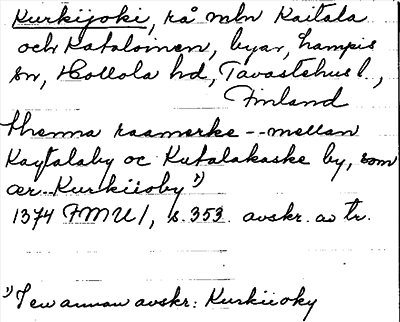 Kurkijoki, rå mln Kaitala
och Kataloinen, byar, Lampis
sn, Hollola hd, Tavastehus l.,
Finland
thenna raamerke -- mellan
Kaytalaby oc Kutalakaske by, som
ær Kurkiioby¹)
1374 FMU 1, s. 353. avskr. av tr.
¹) I en annan avskr: Kurkiioky